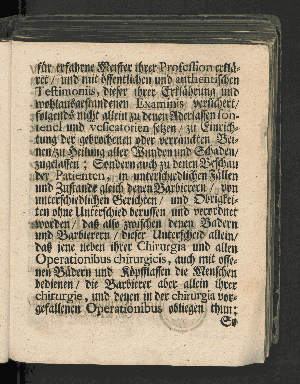 für erfahrne Meister ihrer Profession erklä-
ret / und mit öffentlichen und authentischen
Testimoniis, dieser ihrer Erklährung und
wohlausgestandenen Examinis versichert /
folgends nicht allein zu denen Aderlassen fon-
tenel und vesicatorien setzen / zu Einrich-
tung der gebrochenen oder verränckten Bei-
nen / zu Heilung aller Wunden und Schäden /
zugelassen ; Sondern auch zu denen Beschau
der Patienten, in unterschiedlichen Fällen
und Zustände gleich denen Barbierern / von
unterschiedlichen Gerichten / und Obrigkei-
ten ohne Unterschied beruffen und verordnet
worden / daß also zwischen denen Badern
und Barbierern / dieser Unterscheid allein /
daß jene neben ihrer Chirurgia und allen
Operationibus chirurgicis, auch mit offe-
nen Bädern und Köpfflassen die Menschen
bedienen / die Barbierer aber allein ihrer
chirurgie, und denen in der chirurgia vor-
gefallenen Operationibus obliegen thun :
So